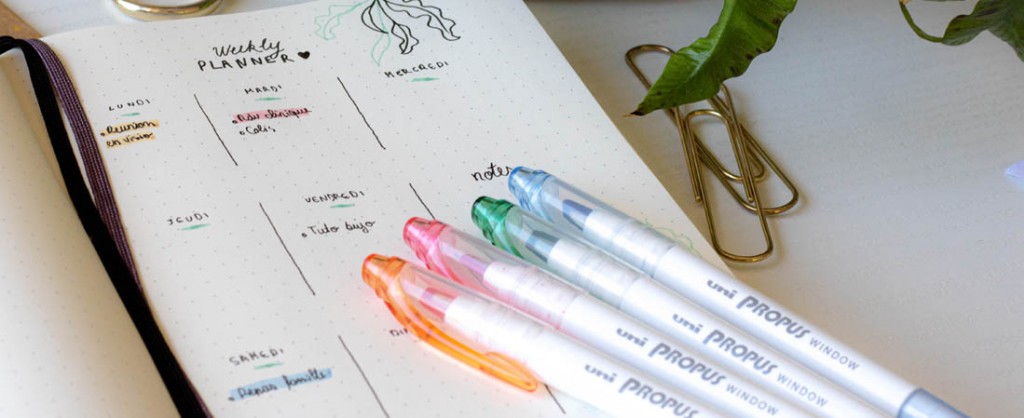 Weekly
PLANNER
LUNDI
MARDI
MERCREDI
• Réunion
en visio
• Rdv clinique
• Colis
notes
JEUDI
VENDREDI
• Tuto bujo
SAMEDI
• Repas famille
DI
uni PROPUS WINDOW
uni PROPUS WINDOW
uni PROPUS WINDOW
uni PROPUS